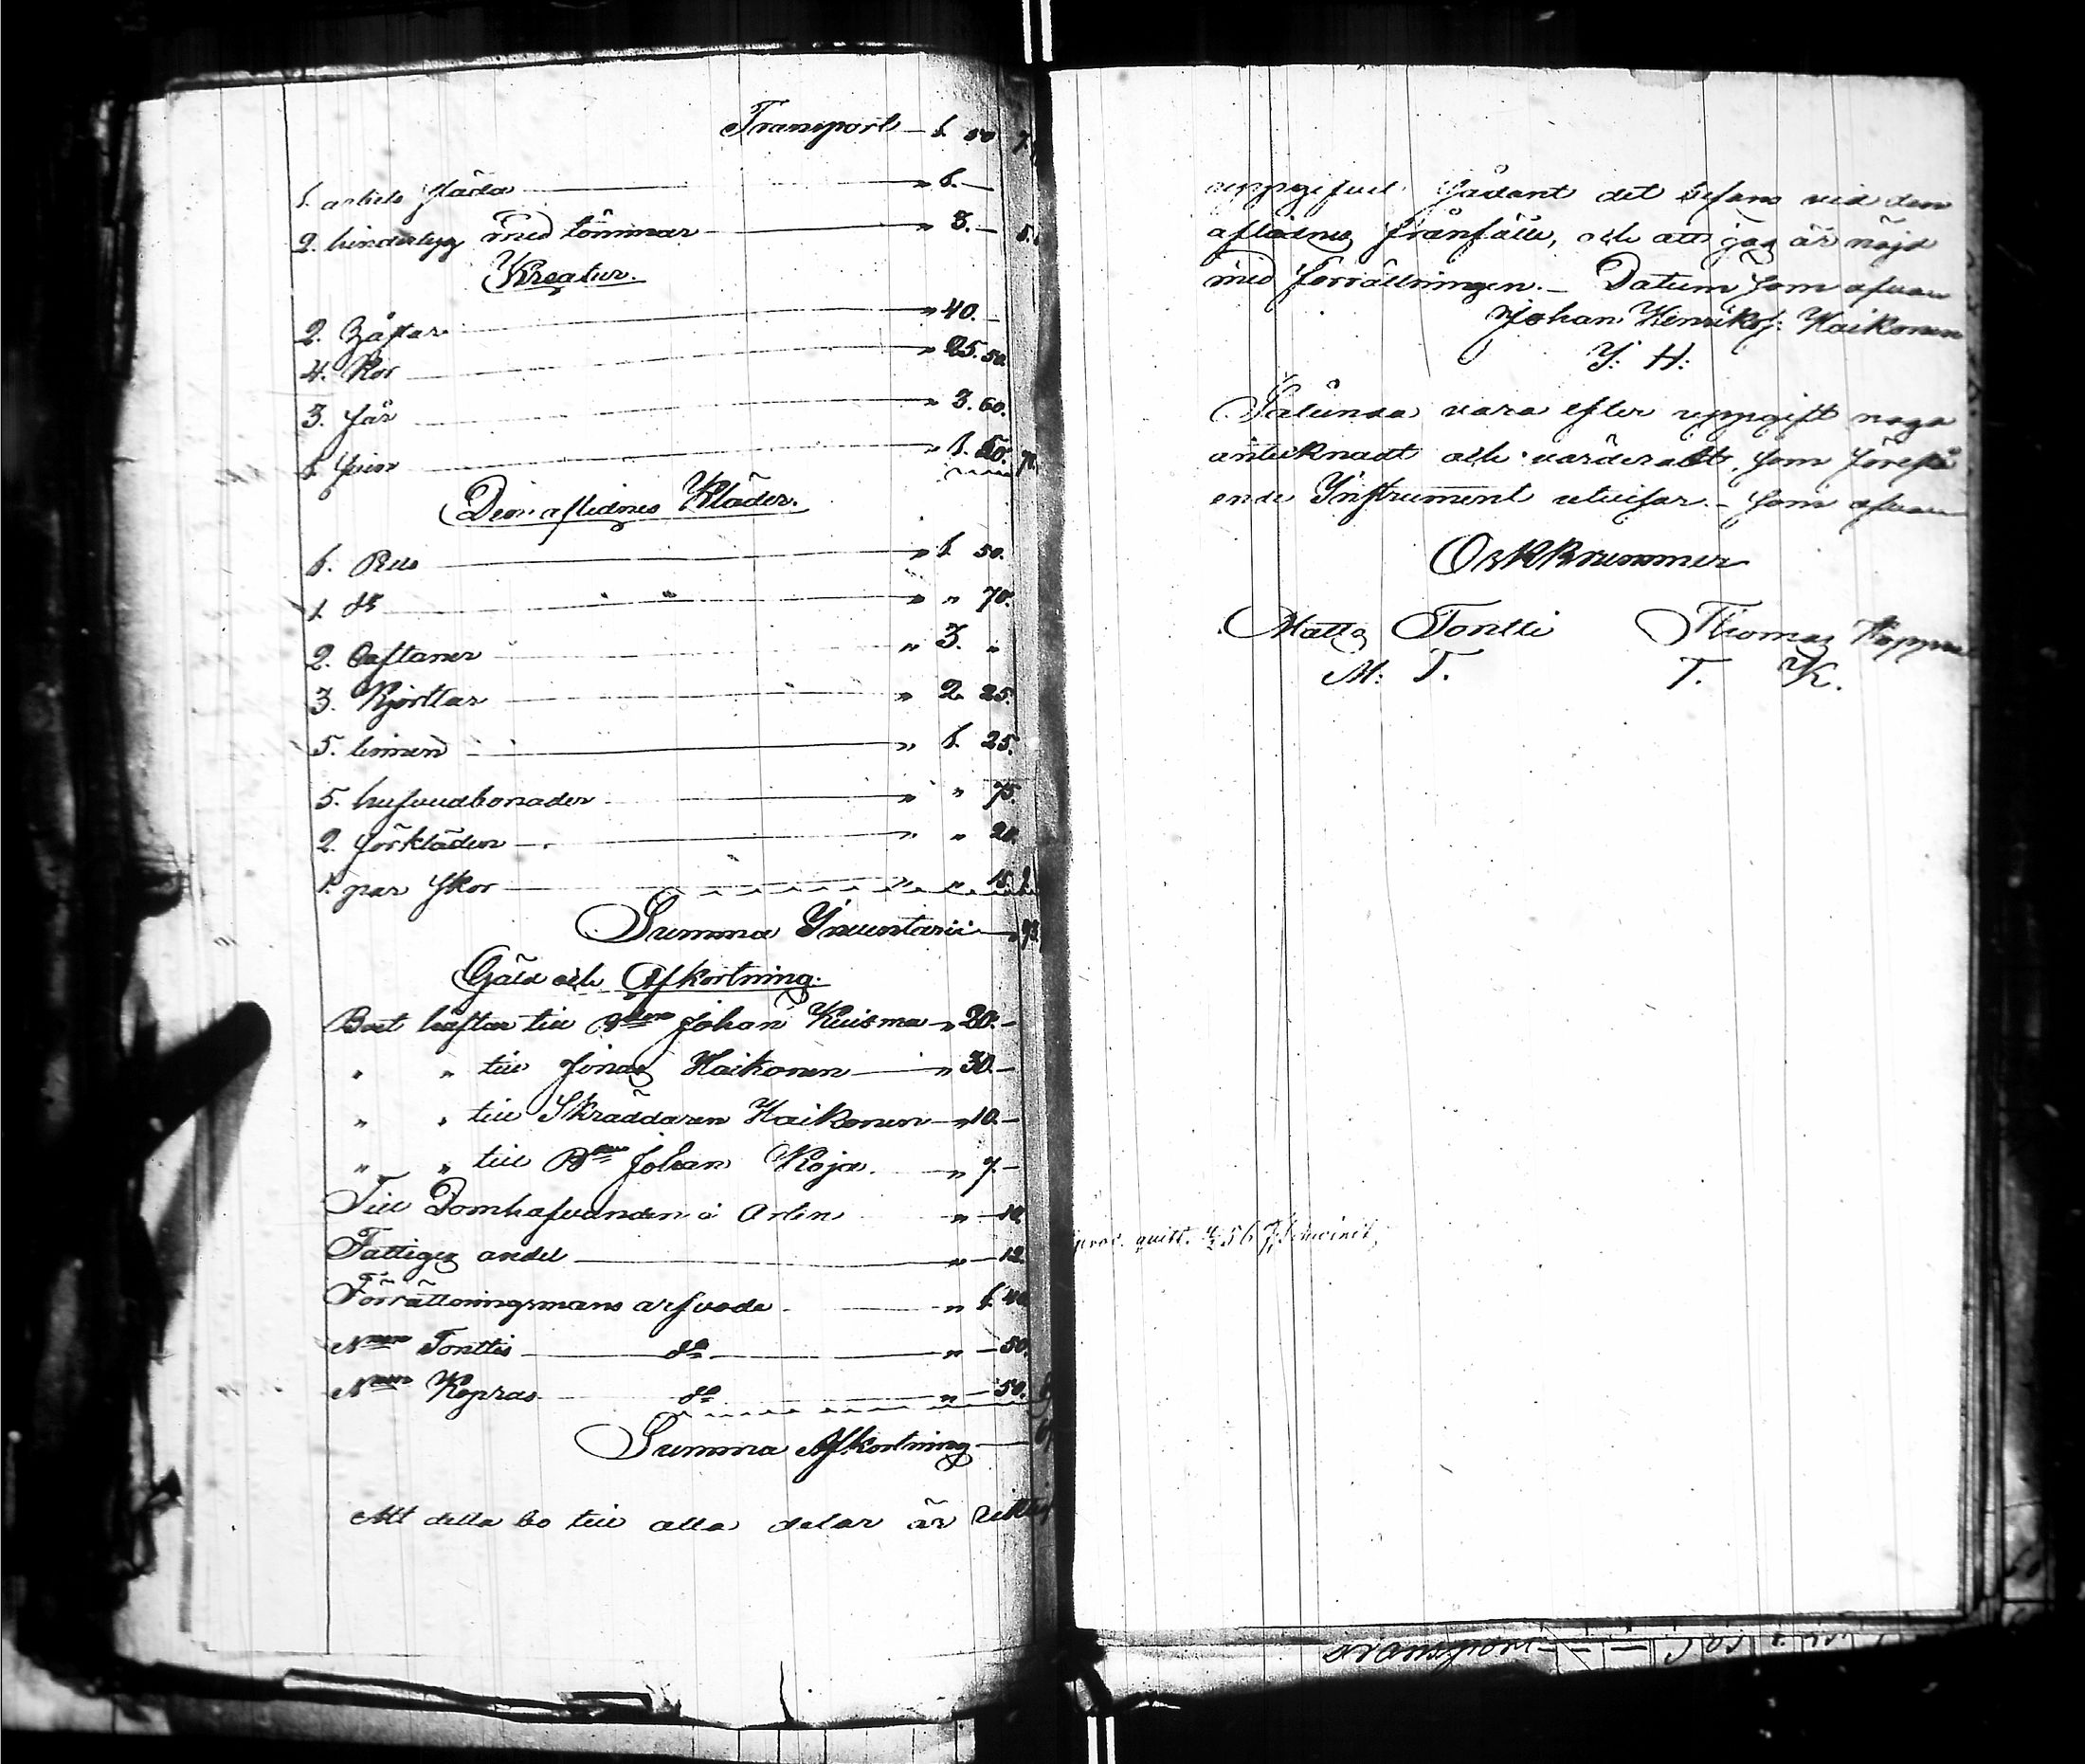 Transport — 1. 50
1. arbets släda — " 1. —
2. hindertyg med tömmar — " 3. —
Kreatur.
2. Hästar — " 40. —
4. Kor — " 25. 50.
3. får — " 3. 60.
1. svin — " 1. 50.
Den aflednes Kläder.
1. Pels — " 1. 50.
1. d:o — " " 70.
2. Caftaner — " 3. "
3. Kjortlar — " 2. 25.
5. linnen — " 1. 25.
5. hufvudbonader — " " 75.
2. förkläden — " " 20.
1. par skor — " " 15.
Summa Inventarii
Gäld och Afkortning.
Boet häftar till Johan Kuisma " 20. —
" " till Jonas Haikonen — " 30. —
" " till Skräddaren Haikonen — " 10. —
" " till Johan Koja. — " 7. —
Till Domhafvanden à Orten " — 10.
Fattiges andel — " — 12.
Förrättningsmans arfvode — " 1. 40.
Tonttis — d:o — " — 50.
Kopras — d:o — " — 50.
Summa Afkortning —
Att detta bo till alla delar är
uppgifvet sådant det befans vid den
aflednes frånfälle, och att jag är nöjd
med förrättningen. — Datum som ofvan
Johan Henriks: Haikonen
J: H:
Sålunda vara efter uppgift noga
antecknadt och värderadt, som förestå
ende Instrument utvisar. — som ofvan
Brummer
Matts Tontti Thomas
M: T. T. K.
quitt. 56
Transport